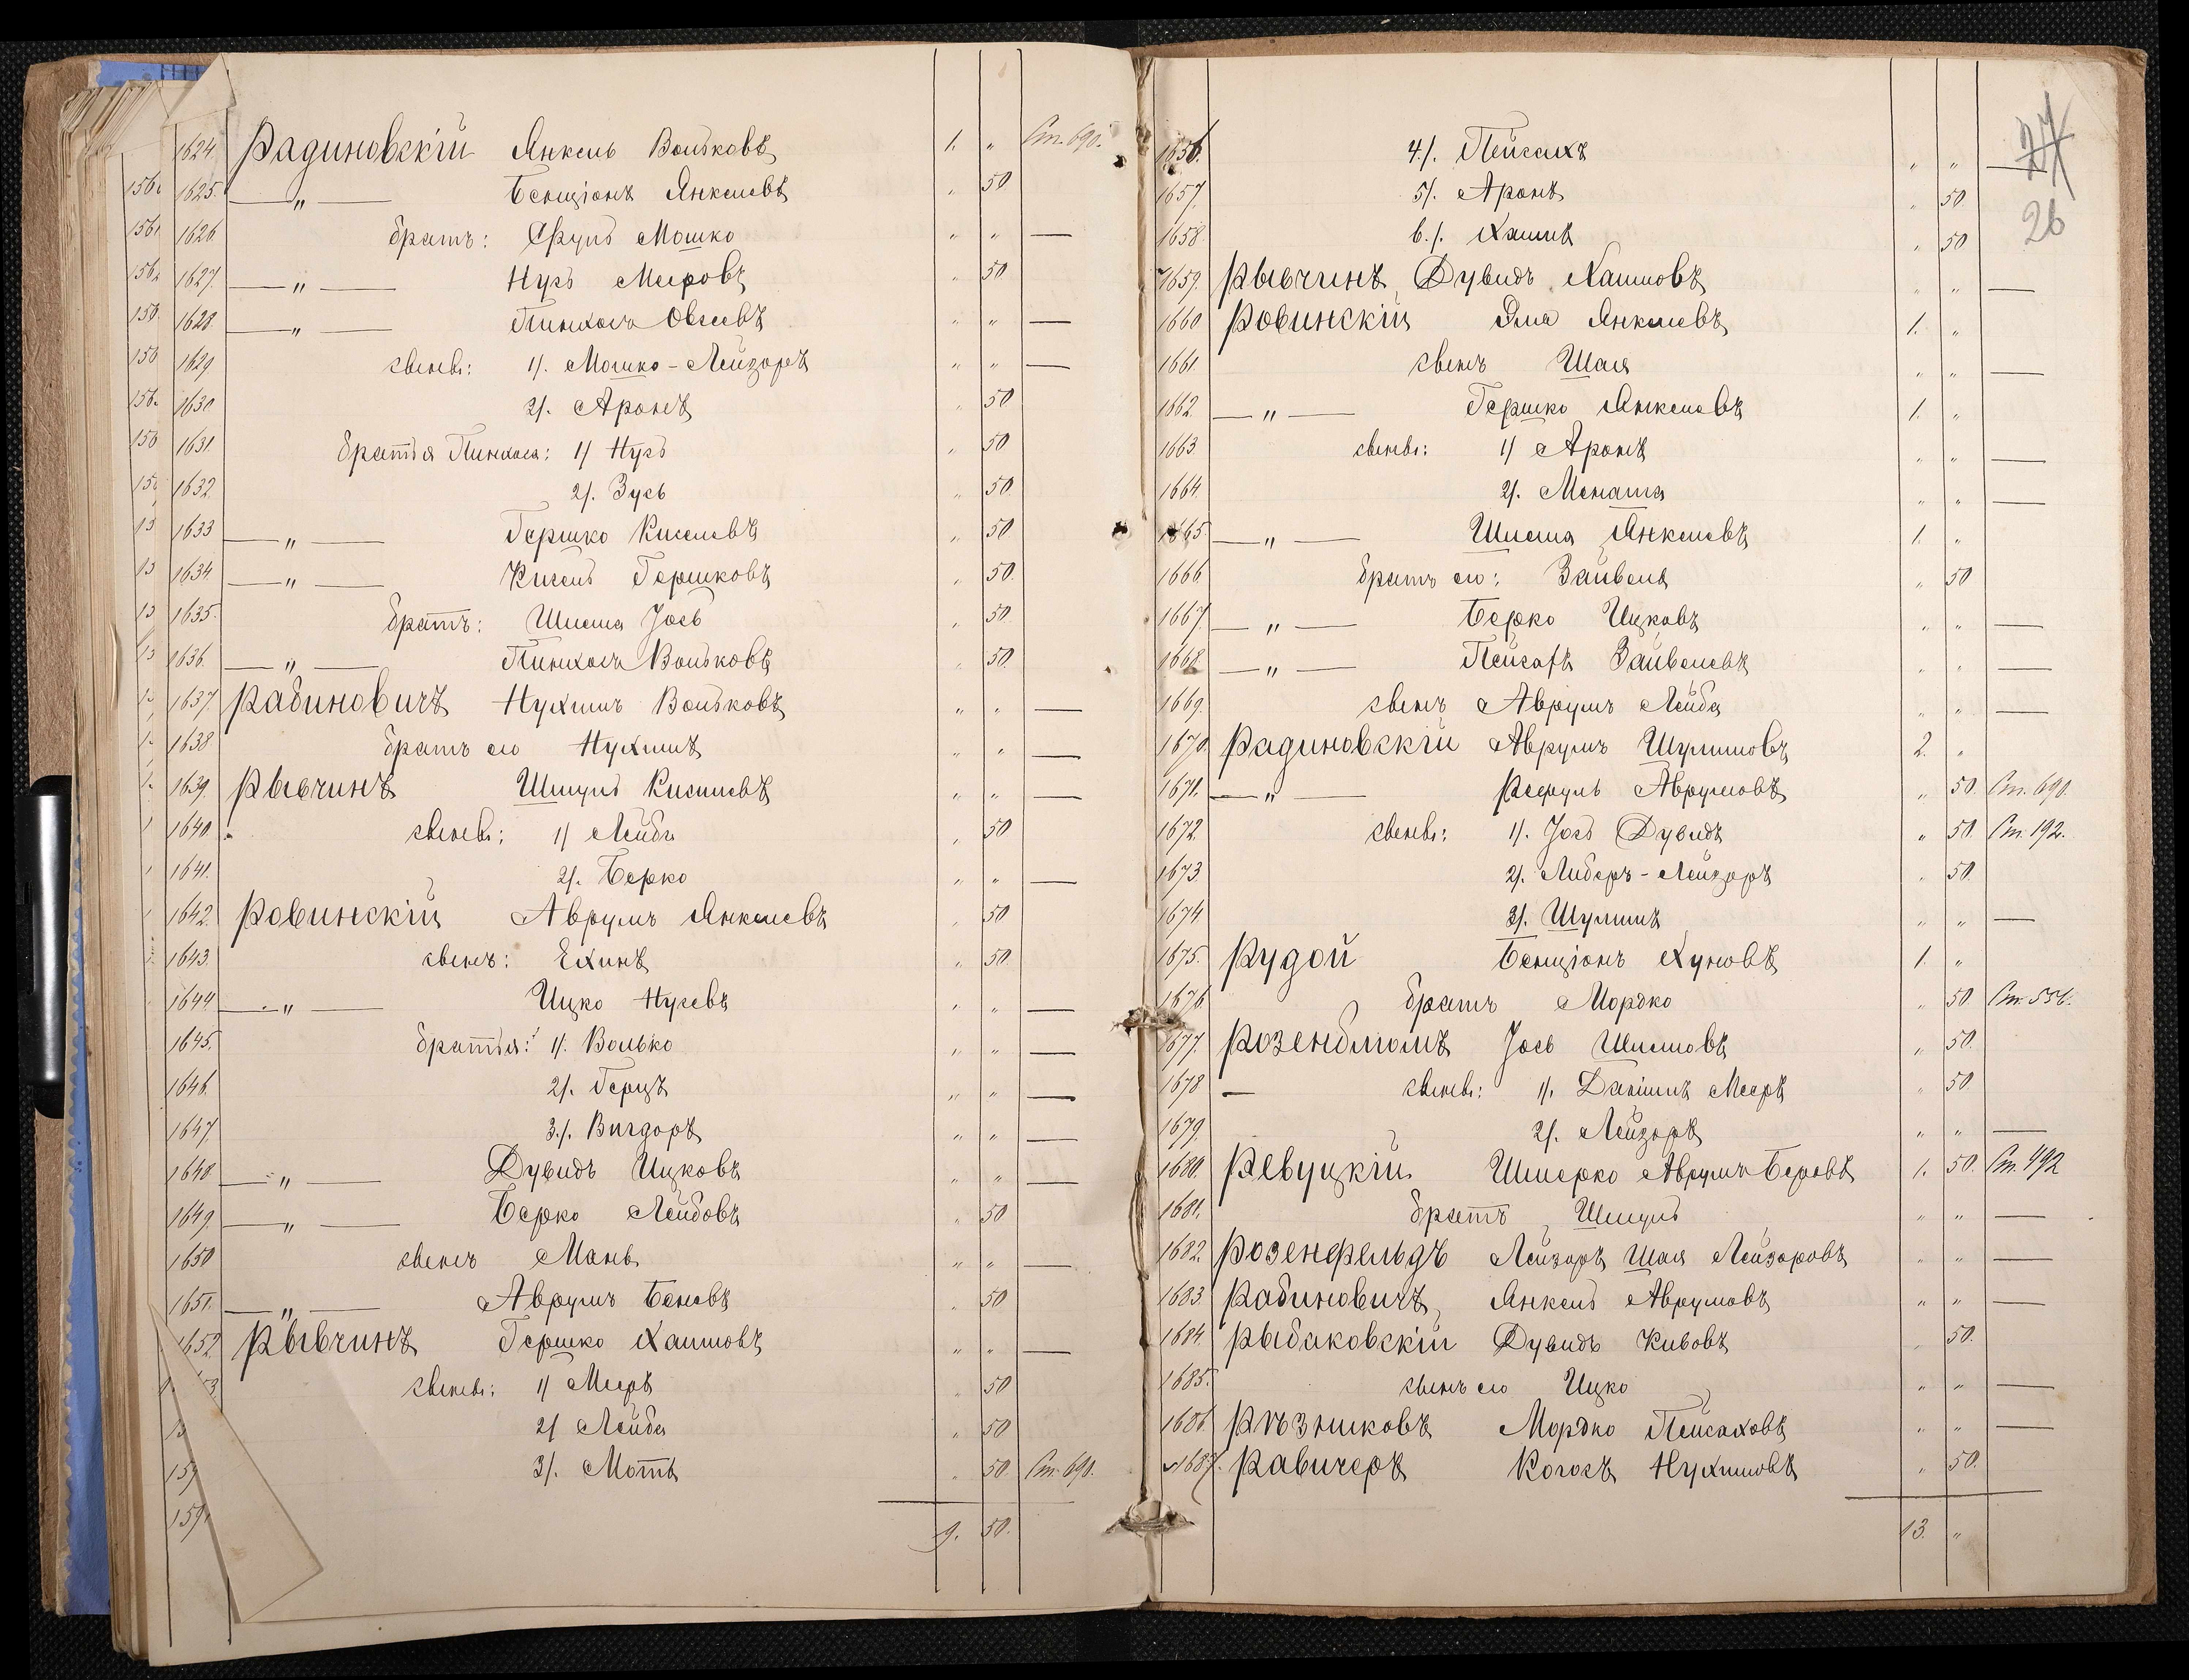 1624 Радиновскій Янкель Вольковъ 1. " Ст. 690.
1625. — " — Бенціонъ Янкелевъ " 50
1626 братъ: Сруль Мошко " " —
1627. — " — Нусъ Мееровъ " 50
1628. — " — Пинхосъ Овсеевъ " " —
1629 сыновья: 1/. Мошко-Лейзоръ " " —
1630 2/. Аронъ " 50
1631. братья Пинхоса: 1/ Нусъ " 50
1632. 2/. Зусь " 50.
1633 — " — Гершко Киселевъ " 50
1634. — " — Кисель Гершковъ " 50.
1635. братъ: Шлема Іось " 50.
1636. — " — Пинхосъ Вольковъ " 50.
1637. Рабиновичъ Нухимъ Вольковъ " " —
1638 братъ его " " —
1639. Рывчинъ Шмуль Киселевъ " " —
1640. сыновья: 1/ Лейба " 50
1641. 2/. Берко " " —
1642. Ровинскій Аврумъ Янкелевъ " 50
1643. сынъ: Ехинъ " 50.
1644. — " — Ицко Нусевъ " " —
1645. братья: 1/. Волько " " —
1646. 2/. Герцъ " " —
1647. 3./. Вигдоръ " " —
1648 — " — Дувидъ Ицковъ " " —
1649. — " — Берко Лейбовъ " 50
1650 сынъ Мань " " —
1651. — " — Аврумъ Беневъ " 50
1652. Рывчинъ Гершко Хаимовъ " " —
сыновья: 1/ Мееръ " 50
2/ Лейба " 50
3/. Мотя " 50 Ст. 690.
9. 50.
27
26
1656. 4/. Пейсахъ " " —
1657. 5/. Аронъ " 50.
1658. 6./. Хаимъ " 50
1659. Рывчинъ Дувидъ Хаимовъ " " —
1660 Ровинскій Эля Янкелевъ 1. "
1661. сынъ Шая " " —
1662. — " — Гершко Янкелевъ 1. "
1663. сыновья: 1/ Аронъ " " —
1664. 2/. Менаша " " —
1665 — " — Шлема Янкелевъ 1. "
1666 братъ его: Зайвель " 50
1667. — " — Берко Ицковъ " " —
1668. — " — Зайвелевъ " " —
1669. сынъ Аврумъ Лейба " " —
1670 Радиновскій Аврумъ Шулимовъ 2. "
1671. — " — Рефуль Аврумовъ " 50. Ст. 690.
1672. сыновья: 1/. Іось Дувидъ " 50. Ст. 192.
1673. 2/. Либеръ-Лейзоръ " 50.
1674 3/. Шулимъ " " —
1675. Рудой Бенціонъ Хуновъ 1. "
1676 братъ Мордко " 50. Ст. 556.
1677. Розенблюмъ Іось Шлемовъ " 50.
1678 — сыновья: 1/. Данiилъ Мееръ " 50
1679. 2/. Лейзоръ " " —
1680. Ревуцкій Шмерко Аврумъ Беровъ 1. 50. Ст. 492
1681. братъ Шмуль " " —
1682. Розенфельдъ Лейзоръ Шая Лейзоровъ " " —
1683. Рабиновичъ Янкель Аврумовъ " " —
1684. Рыбаковскій Дувидъ Кивовъ " 50.
1685. сынъ его Ицко " " —
1686. Рѣзниковъ Мордко Пейсаховъ " " —
1687. Равичеръ Когосъ Нухимовъ " 50.
13. "